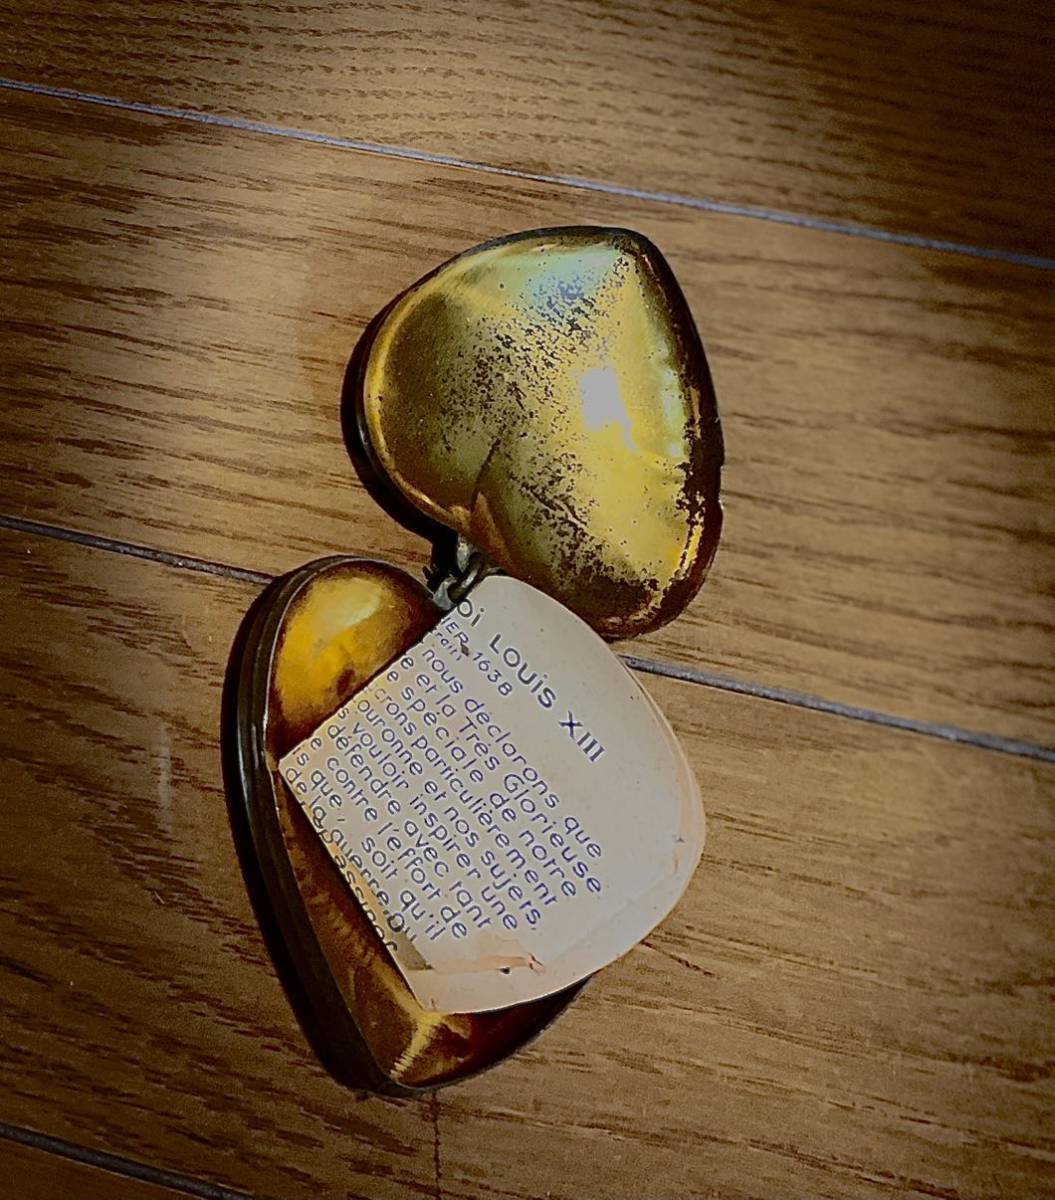 Oi LOUIS XIII
IER 1638
rait
nous déclarons que
e et la Très Glorieuse
e spéciale de notre
crons particulièrement
ouronne et nos sujets,
s vouloir inspirer une
défendre avec tant
e contre l'effort de
is que, soit qu'il
de la guerre ou